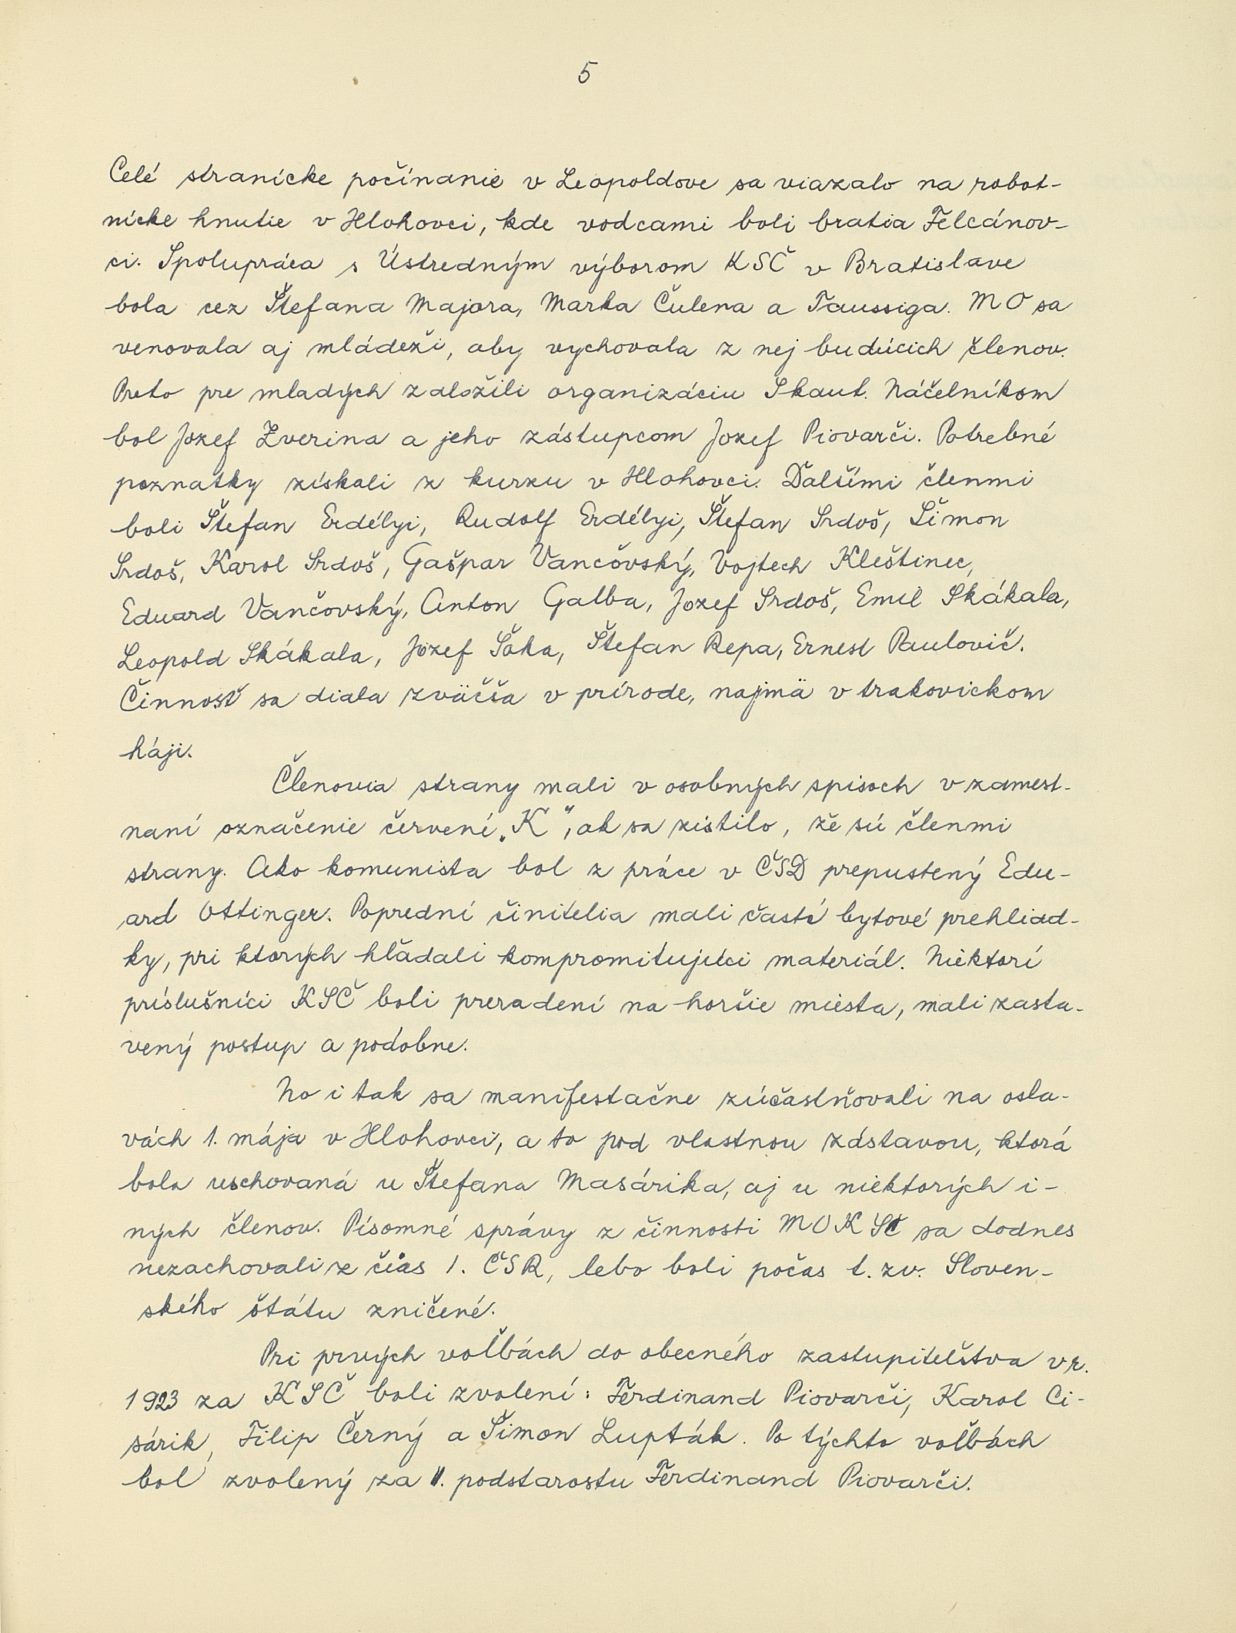 5
Celé stranícke počínanie v Leopoldove sa viazalo na robot-
nícke hnutie v Hlohovci, kde vodcami boli bratia Felcánov-
ci. Spolupráca s Ústredným výborom KSČ v Bratislave
bola cez Štefana Majora, Marka Čulena a Taussiga. MO sa
venovala aj mládeži, aby vychovala z nej budúcich členov.
Preto pre mladých založili organizáciu Skaut. Náčelníkom
bol Jozef Zverina a jeho zástupcom Jozef Piovarči. Potrebné
poznatky získali z kurzu v Hlohovci. Ďalšími členmi
boli Štefan Erdélyi, Rudolf Erdélyi, Štefan Srdoš, Šimon
Srdoš, Karol Srdoš, Gašpar Vančovský, Vojtech Kleštinec,
Eduard Vančovský, Anton Galba, Jozef Srdoš, Emil Skákala,
Leopold Skákala, Jozef Šoka, Štefan Repa, Ernest Paulovič.
Činnosť sa diala zväčša v prírode, najmä v trakovickom
háji.
Členovia strany mali v osobných spisoch v zamest-
naní označenie červení „K", ak sa zistilo, že sú členmi
strany. Ako komunista bol z práce v ČSD prepustený Edu-
ard Ottinger. Poprední činitelia mali časté bytové prehliad-
ky, pri ktorých hľadali kompromitujúci materiál. Niektorí
príslušníci KSČ boli preradení na horšie miesta, mali zasta-
vený postup a podobne.
No i tak sa manifestačne zúčastňovali na osla-
vách 1. mája v Hlohovci, a to pod vlastnou zástavou, ktorá
bola uschovaná u Štefana Masárika, aj u niektorých i-
ných členov. Písomné správy z činnosti MO KSČ sa dodnes
nezachovali z čias 1. ČSR, lebo boli počas t. zv. Sloven-
ského štátu zničené.
Pri prvých voľbách do obecného zastupiteľstva v r.
1923 za KSČ boli zvolení: Ferdinand Piovarči, Karol Ci-
sárik, Filip Černý a Šimon Lupták. Po týchto voľbách
bol zvolený za II. podstarostu Ferdinand Piovarči.